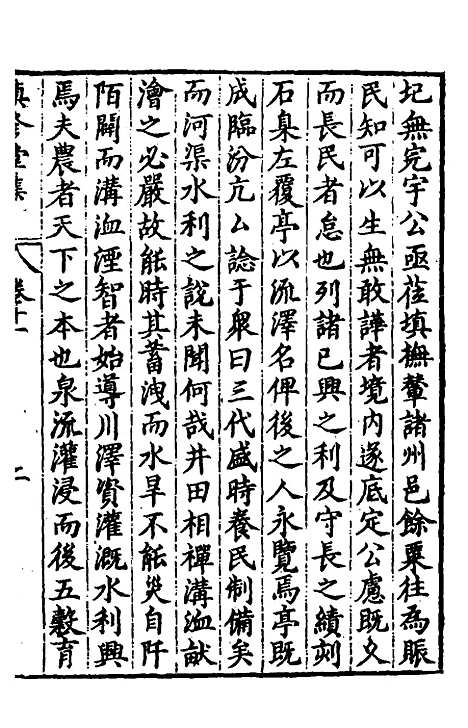 圮無完宇公亟蒞填撫輦諸州邑餘粟往為賑
民知可以生無敢譁者境內遂底定公慮既久
而長民者怠也列諸已興之利及守長之績刻
石臬左覆亭以流澤名俾後之人永覽焉亭既
成臨汾亢公諗于衆曰三代盛時養民制備矣
而河渠水利之說未聞何哉井田相禪溝洫畎
澮之必嚴故能時其蓄洩而水旱不能災自阡
陌闢而溝洫湮智者始導川澤資灌溉水利興
焉夫農者天下之本也泉流灌浸而後五穀育
堂集 卷十一 二